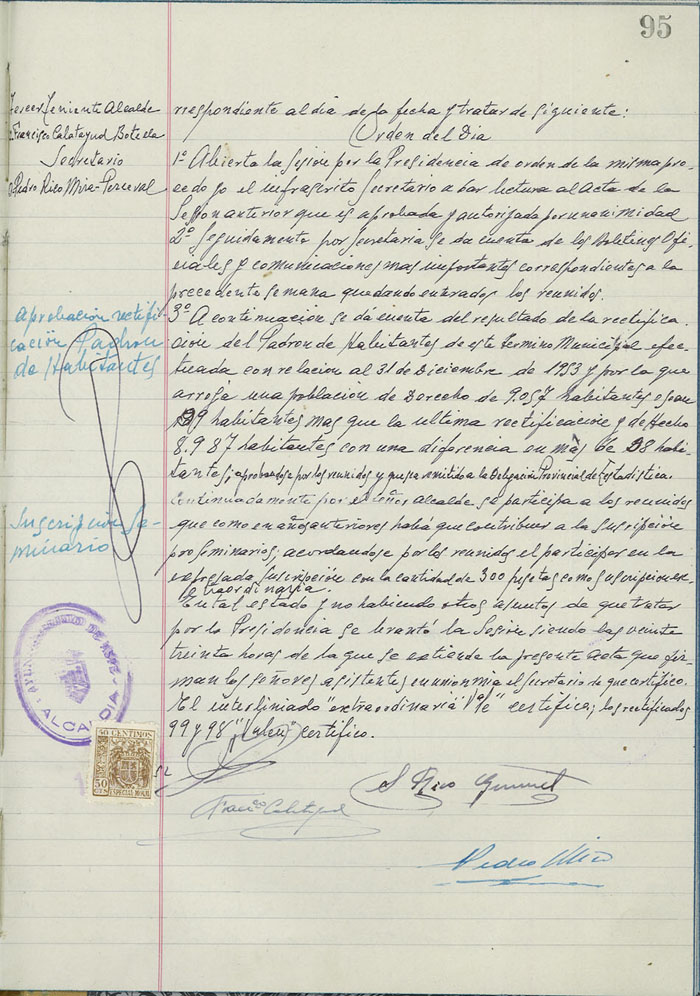 95
Tercer Teniente Alcalde
Francisco Calatayud Botella
Secretario
Pedro Rico Mira-Perceval
rrespondiente al dia de la fecha y tratar de siguiente:
Orden del Dia
1º Abierta la sesion por la Presidencia de orden de la misma pro-
cedo yo el infrascrito secretario a dar lectura al Acta de la
Sesion anterior que es aprobada y autorizada por unanimidad
2º Seguidamente por secretaria se da cuenta de los Boletines Ofi-
ciales y comunicaciones mas importantes correspondientes a la
precedente semana quedando enterados los reunidos.
Aprobación rectifi-
cación Padron
de Habitantes
3º A continuacion se dá cuenta del resultado de la rectifica
cion del Padron de Habitantes de este Termino Municipal efec-
tuada con relacion al 31 de Diciembre de 1953 y por la que
arroja una población de Derecho de 9.057 habitantes o sean
99 habitantes mas que la ultima rectificacion y de Hecho
8.987 habitantes con una diferencia en más de 98 habi-
tantes; aprobandose por los reunidos y que sea remitido a la Delegación Provincial de Estadistica.
Inscripción Se-
minario
Continuadamente por el señor Alcalde se participa a los reunidos
que como en años anteriores habrá que contribuir a la suscripción
pro Seminarios; acordandose por los reunidos el participar en la
expresada suscripción con la cantidad de 300 pesetas como suscripcion ex-
traordinaria.
En tal estado y no habiendo otros asuntos de que tratar
por la Presidencia se levantó la Sesion siendo las veinte
treinta horas de la que se extiende la presente Acta que fir-
man los señores asistentes en union mia el secretario de que certifico.
El interliniado "extraordinaria" Vale certifico; los rectificados
99 y 98" Valen certifico.
AYUNTAMIENTO DE ASPE
ALCALDIA
50 CENTIMOS
50 CTS
ESPECIAL MOVIL
Franco Calatayud
S Rico
Pedro Rico